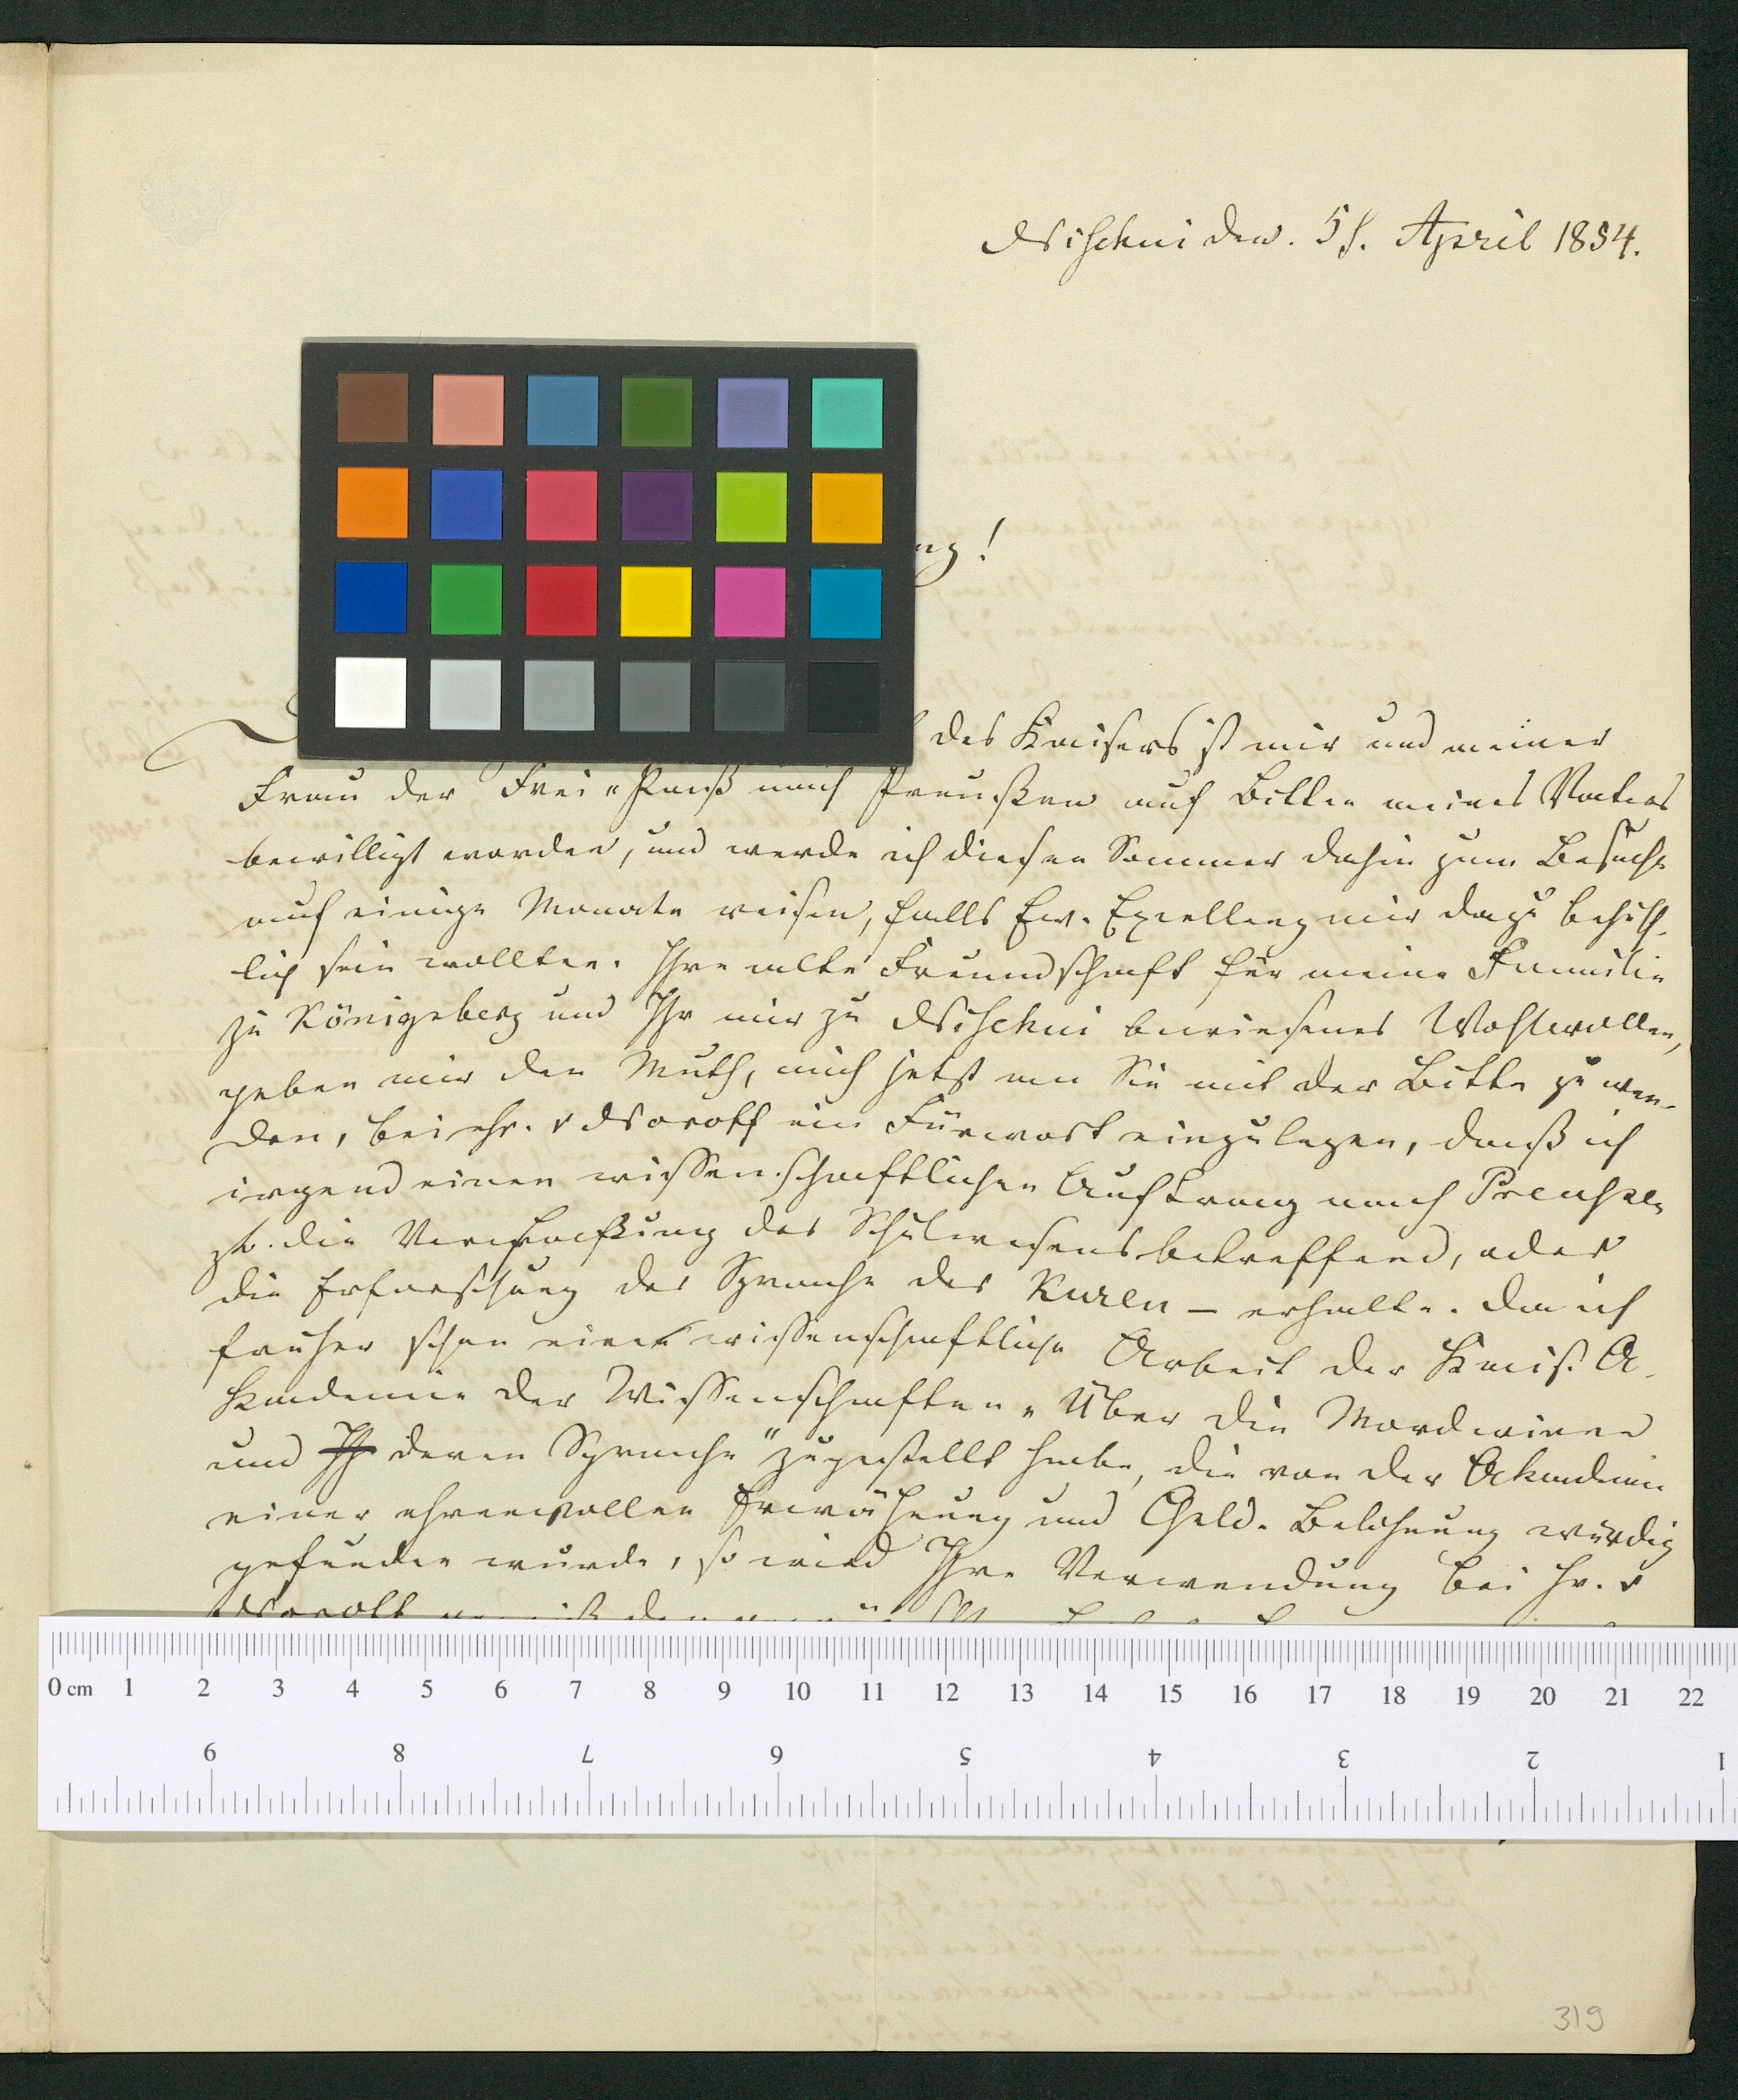 Nischni den. 5t. April 1854.
ng!
des Kaisers ist mir und meiner
Frau der Frei-Paß nach Preußen auf Bitten meines Vaters
bewilligt worden, und werde ich diesen Sommer dahin zum Besuche
auf einige Monate reisen, falls Ew. Excellenz mir dazu behülf-
lich sein wollten. Ihre alte Freundschaft für meine Familie
zu Königsberg und Ihr mir zu Nischni bewiesenes Wohlwollen,
geben mir den Muth, mich jetzt an Sie mit der Bitte zu wen-
den, bei Hr. v Noroff ein Fürwort einzulegen, daß ich
irgend einen wissenschaftlichen Auftrag nach Preußen
zb. die Verfassung des Schulwesens betreffend, oder
die Erforschung der Sprache der Kuren – erhalte. Da ich
früher schon eine wissenschaftliche Arbeit der Kais. A-
kademie der Wissenschaften „Über die Mordwinen
und deren Sprache" zugestellt habe, die von der Akademie
einer ehrenvollen Erwähnung und Geld-Belohnung würdig
gefunden wurde, so wird Ihre Verwendung bei Hr. v
Noroff
0 cm 1 2 3 4 5 6 7 8 9 10 11 12 13 14 15 16 17 18 19 20 21 22
9 8 7 6 5 4 3 2 1
319